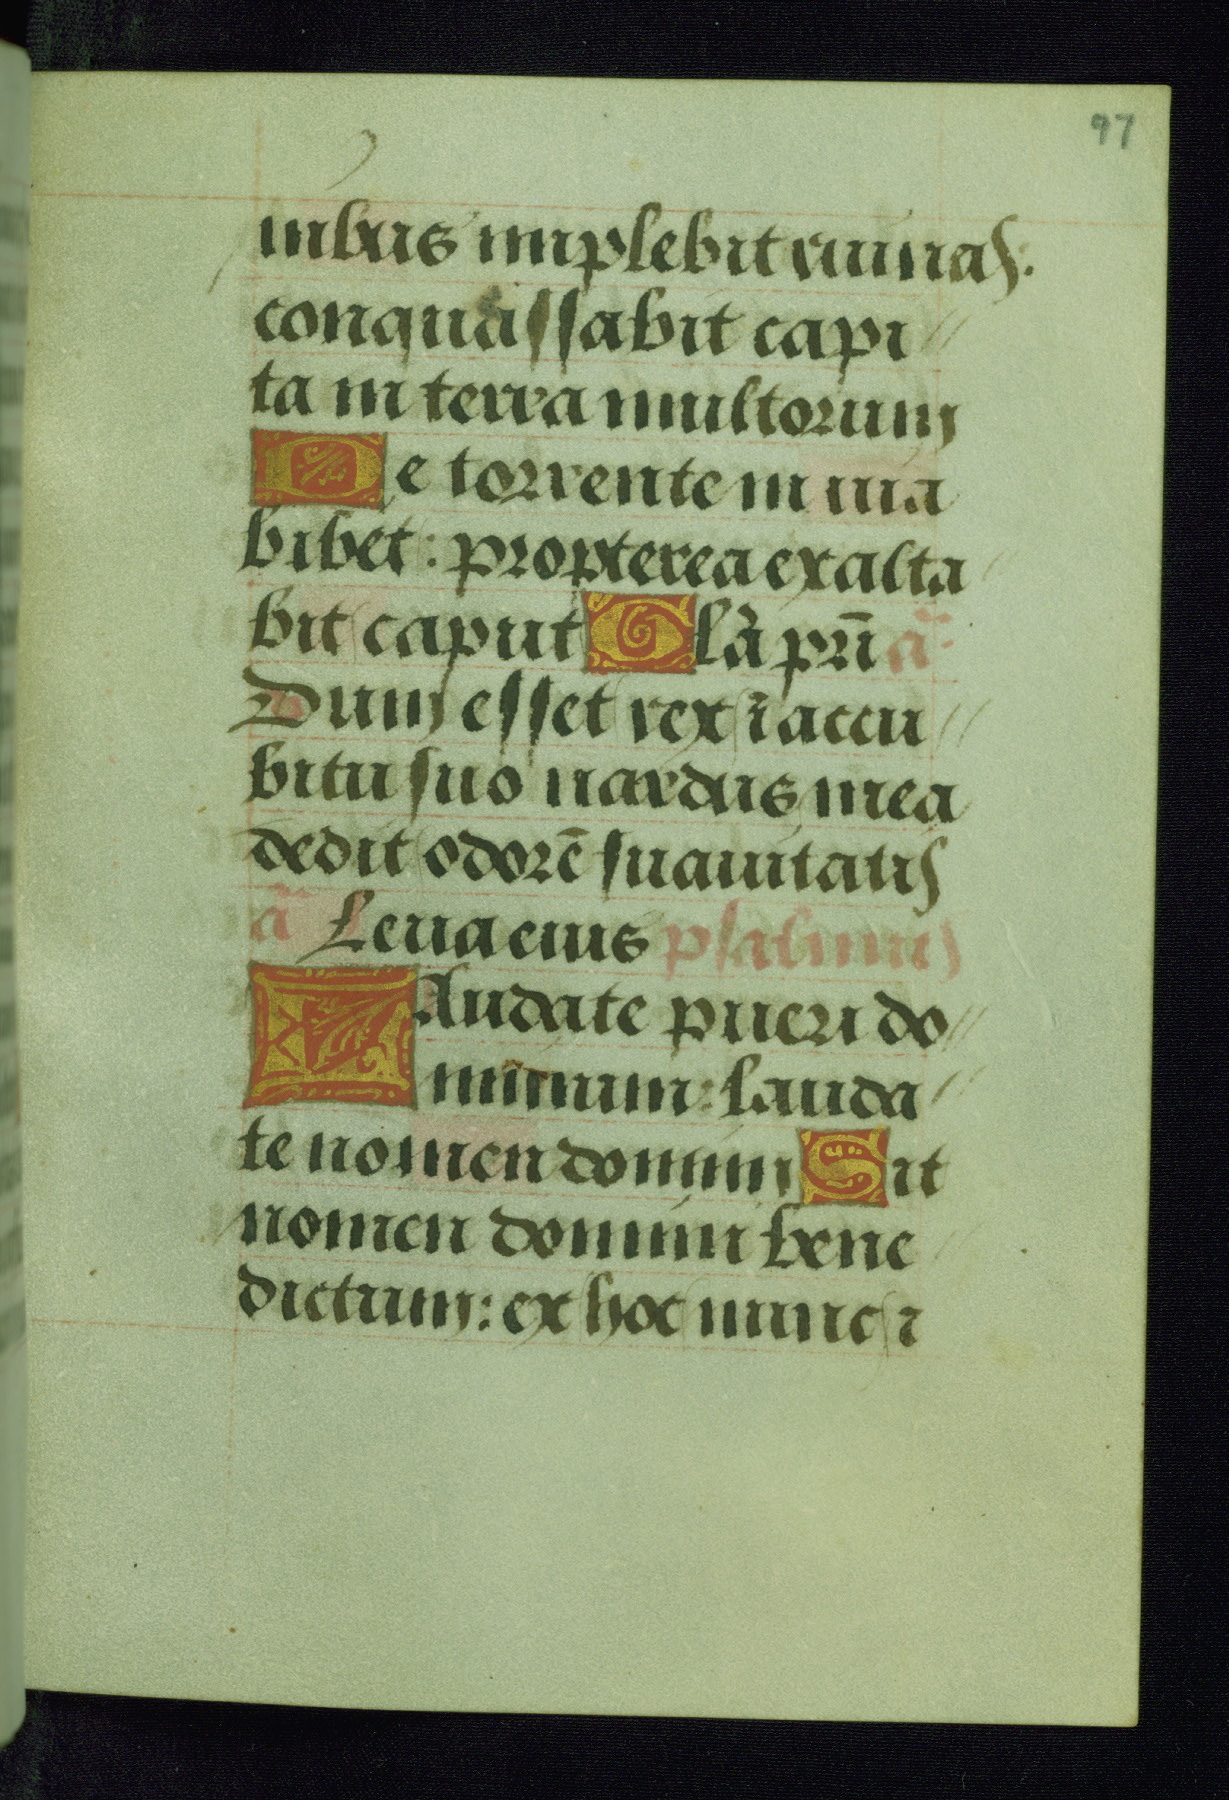 97
nibus implebit ruinas:
conquassabit capi//
ta in terra multorum
De torrente in uia
bibet: propterea exalta
bit caput Glã prı̃ ã:
Dum esset rex ĩ accu//
bitu suo nardus mea
dedit odorẽ suauitatis
ã Leua eius psalmus
Laudate pueri do//
minum: lauda//
te nomen domini Sit
nomen domini bene
dictum: ex hoc nunc ⁊